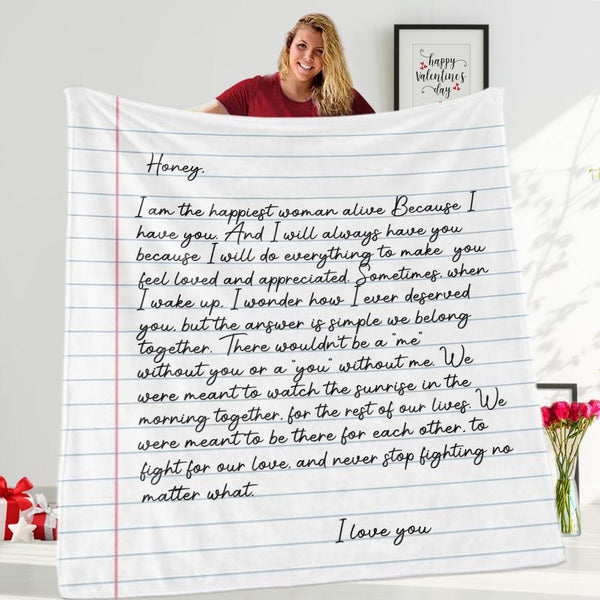 happy
Valentine's
day
Honey,
I am the happiest woman alive Because I
have you. And I will always have you
because I will do everything to make you
feel loved and appreciated. Sometimes, when
I wake up, I wonder how I ever deserved
you, but the answer is simple we belong
together. There wouldn't be a "me"
without you or a "you" without me. We
were meant to watch the sunrise in the
morning together, for the rest of our lives. We
were meant to be there for each other, to
fight for our love, and never stop fighting no
matter what.
I love you